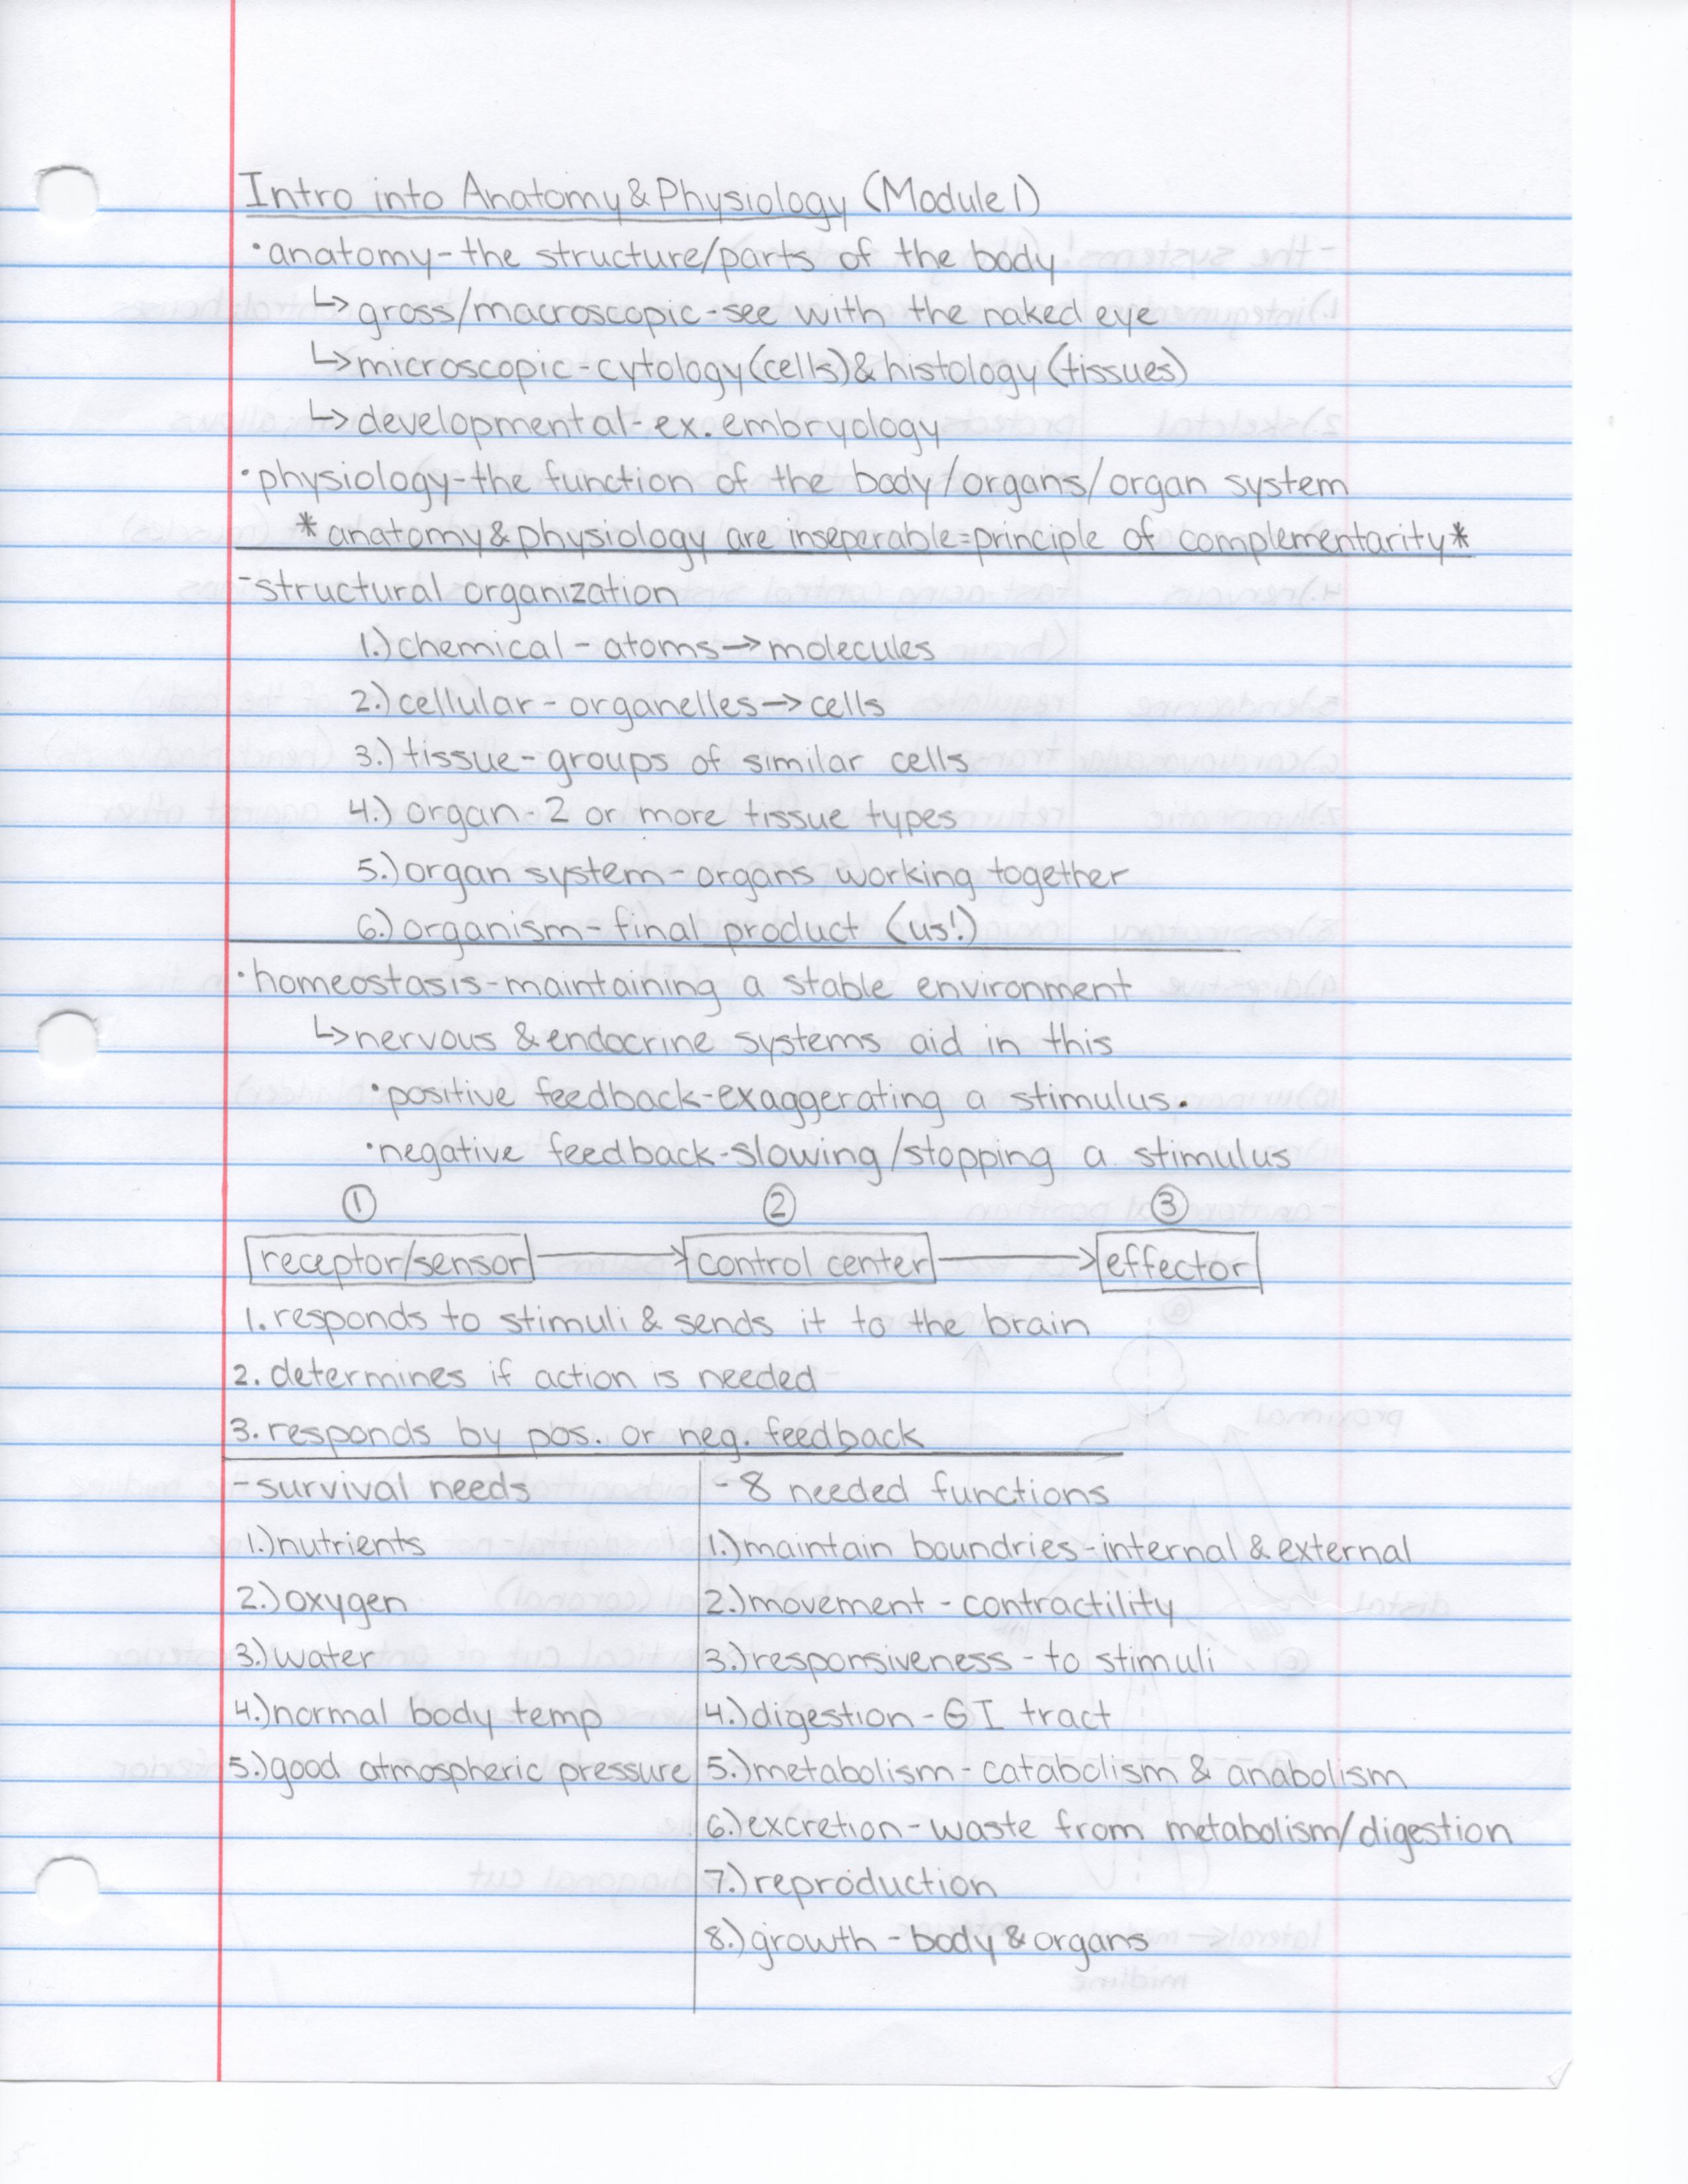 Intro into Anatomy & Physiology (Module 1)
• anatomy - the structure/parts of the body
↳ gross/macroscopic - see with the naked eye
↳ microscopic - cytology (cells) & histology (tissues)
↳ developmental - ex. embryology
• physiology - the function of the body/organs/organ system
* anatomy & physiology are inseperable = principle of complementarity *
- structural organization
1.) chemical - atoms → molecules
2.) cellular - organelles → cells
3.) tissue - groups of similar cells
4.) organ - 2 or more tissue types
5.) organ system - organs working together
6.) organism - final product (us!)
• homeostasis - maintaining a stable environment
↳ nervous & endocrine systems aid in this
• positive feedback - exaggerating a stimulus.
• negative feedback - slowing/stopping a stimulus
① ② ③
receptor/sensor → control center → effector
1. responds to stimuli & sends it to the brain
2. determines if action is needed
3. responds by pos. or neg. feedback
- survival needs
1.) nutrients
2.) oxygen
3.) water
4.) normal body temp
5.) good atmospheric pressure
- 8 needed functions
1.) maintain boundries - internal & external
2.) movement - contractility
3.) responsiveness - to stimuli
4.) digestion - GI tract
5.) metabolism - catabolism & anabolism
6.) excretion - waste from metabolism/digestion
7.) reproduction
8.) growth - body & organs